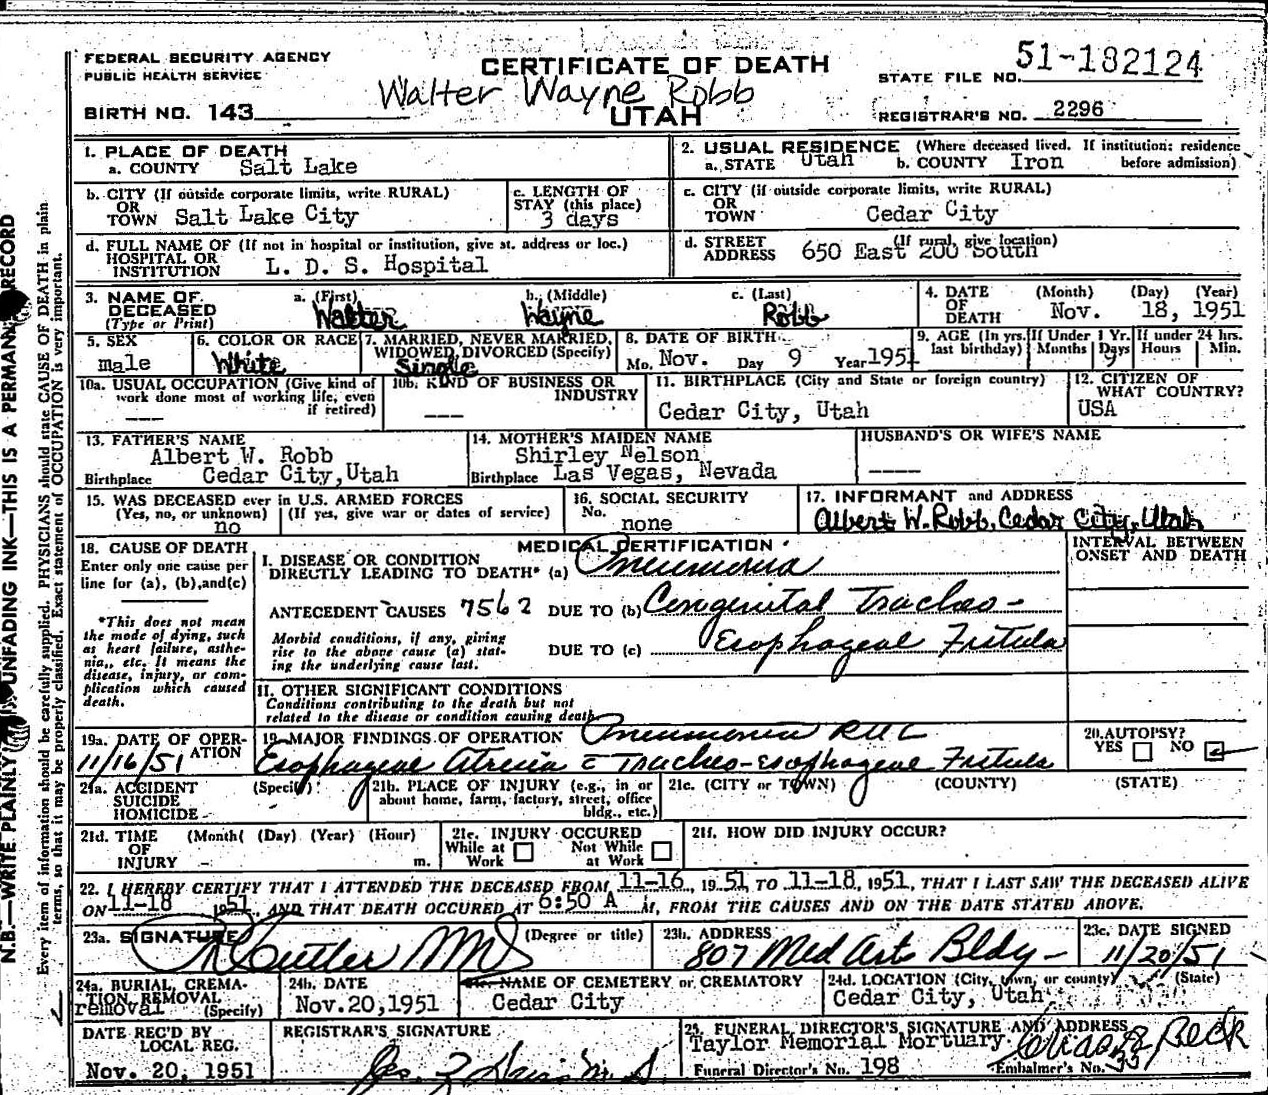 FEDERAL SECURITY AGENCY
PUBLIC HEALTH SERVICE
CERTIFICATE OF DEATH
STATE FILE NO. 51-182124
Walter Wayne Robb
BIRTH NO. 143
UTAH
REGISTRAR'S NO. 2296
1. PLACE OF DEATH
a. COUNTY Salt Lake
2. USUAL RESIDENCE (Where deceased lived. If institution: residence before admission)
a. STATE Utah b. COUNTY Iron
b. CITY (If outside corporate limits, write RURAL)
OR
TOWN Salt Lake City
c. LENGTH OF
STAY (this place)
3 days
c. CITY (if outside corporate limits, write RURAL)
OR
TOWN Cedar City
d. FULL NAME OF (If not in hospital or institution, give st. address or loc.)
HOSPITAL OR
INSTITUTION L. D. S. Hospital
d. STREET (If rural, give location)
ADDRESS 650 East 200 South
3. NAME OF
DECEASED
(Type or Print)
a. (First) Walter
b. (Middle) Wayne
c. (Last) Robb
4. DATE
OF
DEATH
(Month) (Day) (Year)
Nov. 18, 1951
5. SEX
male
6. COLOR OR RACE
White
7. MARRIED, NEVER MARRIED,
WIDOWED, DIVORCED (Specify)
Single
8. DATE OF BIRTH
Mo. Nov. Day 9 Year 1951
9. AGE (In yrs.
last birthday)
If Under 1 Yr.
Months Days
9
If under 24 hrs.
Hours Min.
10a. USUAL OCCUPATION (Give kind of
work done most of working life, even
if retired)
---
10b. KIND OF BUSINESS OR
INDUSTRY
---
11. BIRTHPLACE (City and State or foreign country)
Cedar City, Utah
12. CITIZEN OF
WHAT COUNTRY?
USA
13. FATHER'S NAME
Albert W. Robb
Birthplace Cedar City, Utah
14. MOTHER'S MAIDEN NAME
Shirley Nelson
Birthplace Las Vegas, Nevada
HUSBAND'S OR WIFE'S NAME
----
15. WAS DECEASED ever in U.S. ARMED FORCES
(Yes, no, or unknown) (If yes, give war or dates of service)
no
16. SOCIAL SECURITY
No.
none
17. INFORMANT and ADDRESS
Albert W. Robb, Cedar City, Utah
18. CAUSE OF DEATH
Enter only one cause per
line for (a), (b), and (c)
*This does not mean
the mode of dying, such
as heart failure, asthe-
nia, etc. It means the
disease, injury, or com-
plication which caused
death.
MEDICAL CERTIFICATION
INTERVAL BETWEEN
ONSET AND DEATH
I. DISEASE OR CONDITION
DIRECTLY LEADING TO DEATH* (a) Pneumonia
ANTECEDENT CAUSES 7562 DUE TO (b) Congenital Tracheo-
Morbid conditions, if any, giving
rise to the above cause (a) stat-
ing the underlying cause last.
DUE TO (c) Esophageal Fistula
II. OTHER SIGNIFICANT CONDITIONS
Conditions contributing to the death but not
related to the disease or condition causing death
19a. DATE OF OPER-
ATION
11/16/51
19. MAJOR FINDINGS OF OPERATION Pneumonia RUL
Esophageal Atresia c Tracheo-esophageal Fistula
20. AUTOPSY?
YES NO
21a. ACCIDENT (Specify)
SUICIDE
HOMICIDE -
21b. PLACE OF INJURY (e.g., in or
about home, farm, factory, street, office
bldg., etc.)
21c. (CITY or TOWN) (COUNTY) (STATE)
21d. TIME (Month) (Day) (Year) (Hour)
OF
INJURY - m.
21e. INJURY OCCURED
While at Work Not While at Work
21f. HOW DID INJURY OCCUR?
22. I HEREBY CERTIFY THAT I ATTENDED THE DECEASED FROM 11-16, 1951 TO 11-18, 1951, THAT I LAST SAW THE DECEASED ALIVE
ON 11-18 1951, AND THAT DEATH OCCURED AT 6:50 A M, FROM THE CAUSES AND ON THE DATE STATED ABOVE.
23a. SIGNATURE (Degree or title)
Cutler MD
23b. ADDRESS
807 Med Arts Bldg-
23c. DATE SIGNED
11/20/51
24a. BURIAL, CREMA-
TION, REMOVAL
removal (Specify)
24b. DATE
Nov.20,1951
NAME OF CEMETERY or CREMATORY
Cedar City
24d. LOCATION (City, town, or county) (State)
Cedar City, Utah
DATE REC'D BY
LOCAL REG.
Nov. 20, 1951
REGISTRAR'S SIGNATURE
25. FUNERAL DIRECTOR'S SIGNATURE AND ADDRESS
Taylor Memorial Mortuary
Funeral Director's No. 198
Embalmer's No.
N.B.—WRITE PLAINLY UNFADING INK—THIS IS A PERMANENT RECORD
Every item of information should be carefully supplied. PHYSICIANS should state CAUSE OF DEATH in plain
terms, so that it may be properly classified. Exact statement of OCCUPATION is very important.